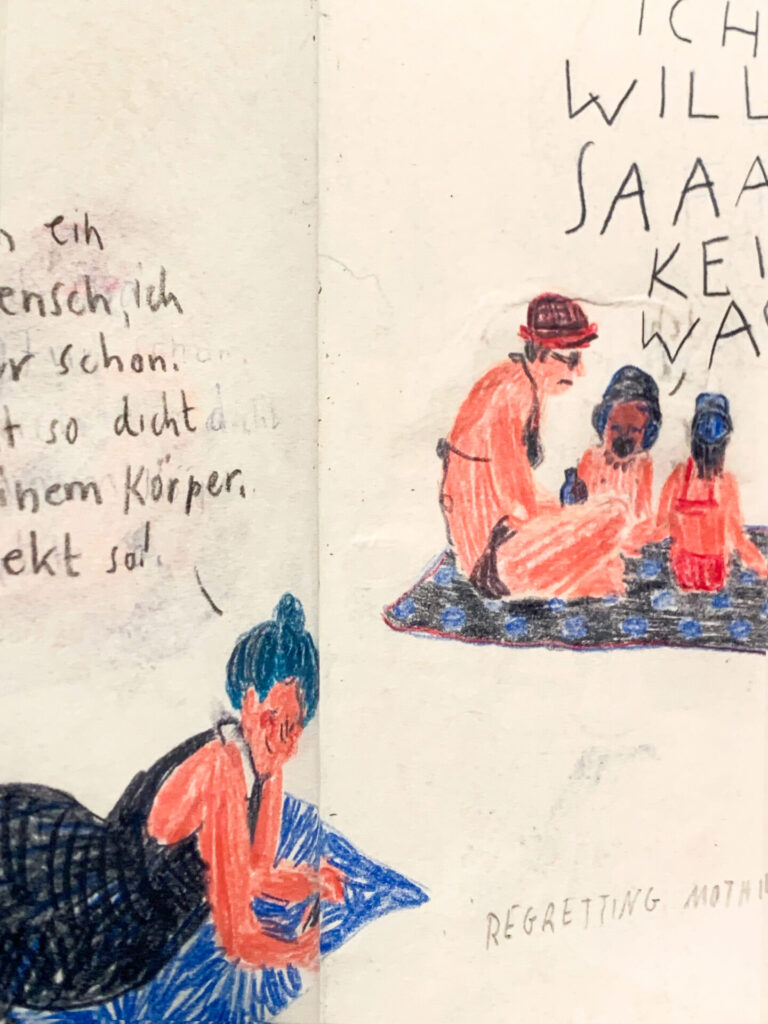 n ein
ensch, ich
r schon.
t so dicht
inem Körper.
ekt so!
ICH
WILL
SAAA
KEI
WAS
REGRETTING MOTH